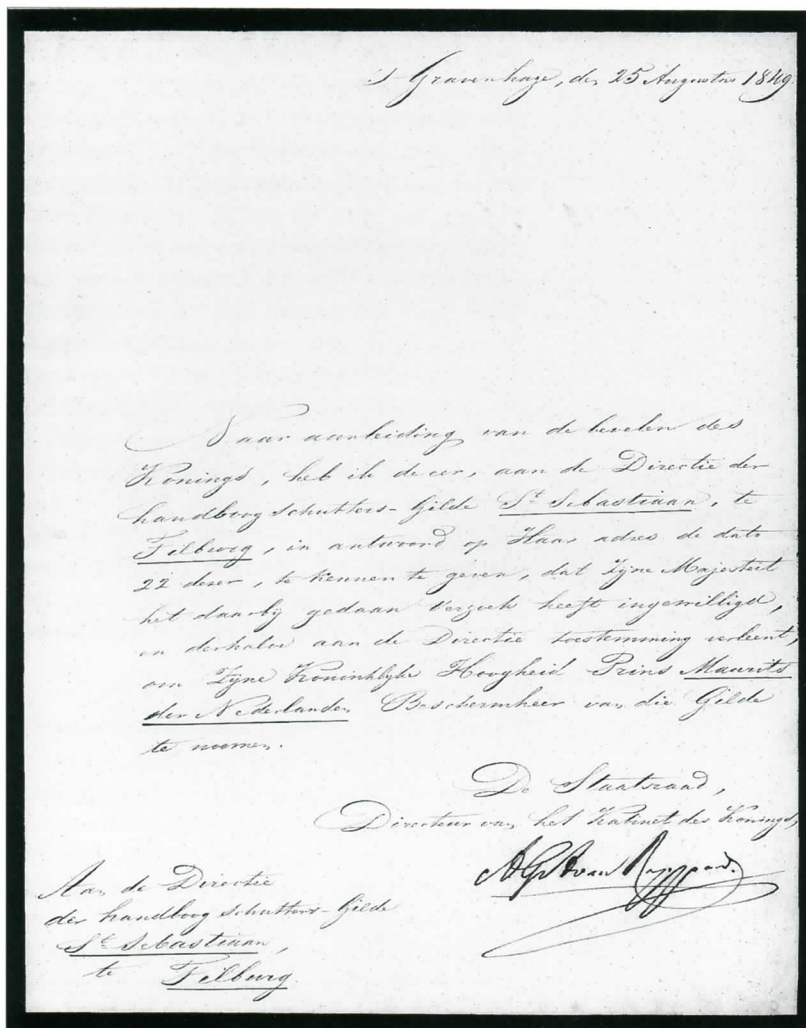 's Gravenhage, den 25 Augustus 1849.
Naar aanleiding van de bevelen des
Konings, heb ik de eer, aan de Directie der
handboog schutters-Gilde St Sebastiaan, te
Tilburg, in antwoord op Haar adres de dato
22 dezer, te kennen te geven, dat Zijne Majesteit
het daarbij gedaan verzoek heeft ingewilligd,
en derhalve aan de Directie toestemming verleent,
om Zijne Koninklijke Hoogheid Prins Maurits
der Nederlanden Beschermheer van die Gilde
te noemen.
De Staatsraad,
Directeur van het Kabinet des Konings,
AGA van Rappard
Aan de Directie
der handboog schutters-Gilde
St Sebastiaan,
te Tilburg.